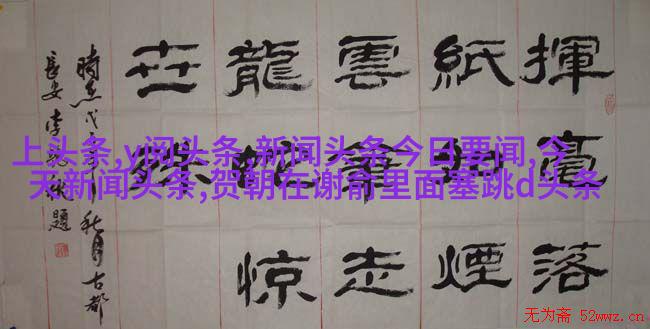 揮毫落
紙煙
雲筆走
龍惊
世
秋月古都
長安李題
上头条,y阅头条,新闻头条今日要闻,今
天新闻头条,贺朝在谢俞里面塞跳d头条
无为斋 52wwz.cn